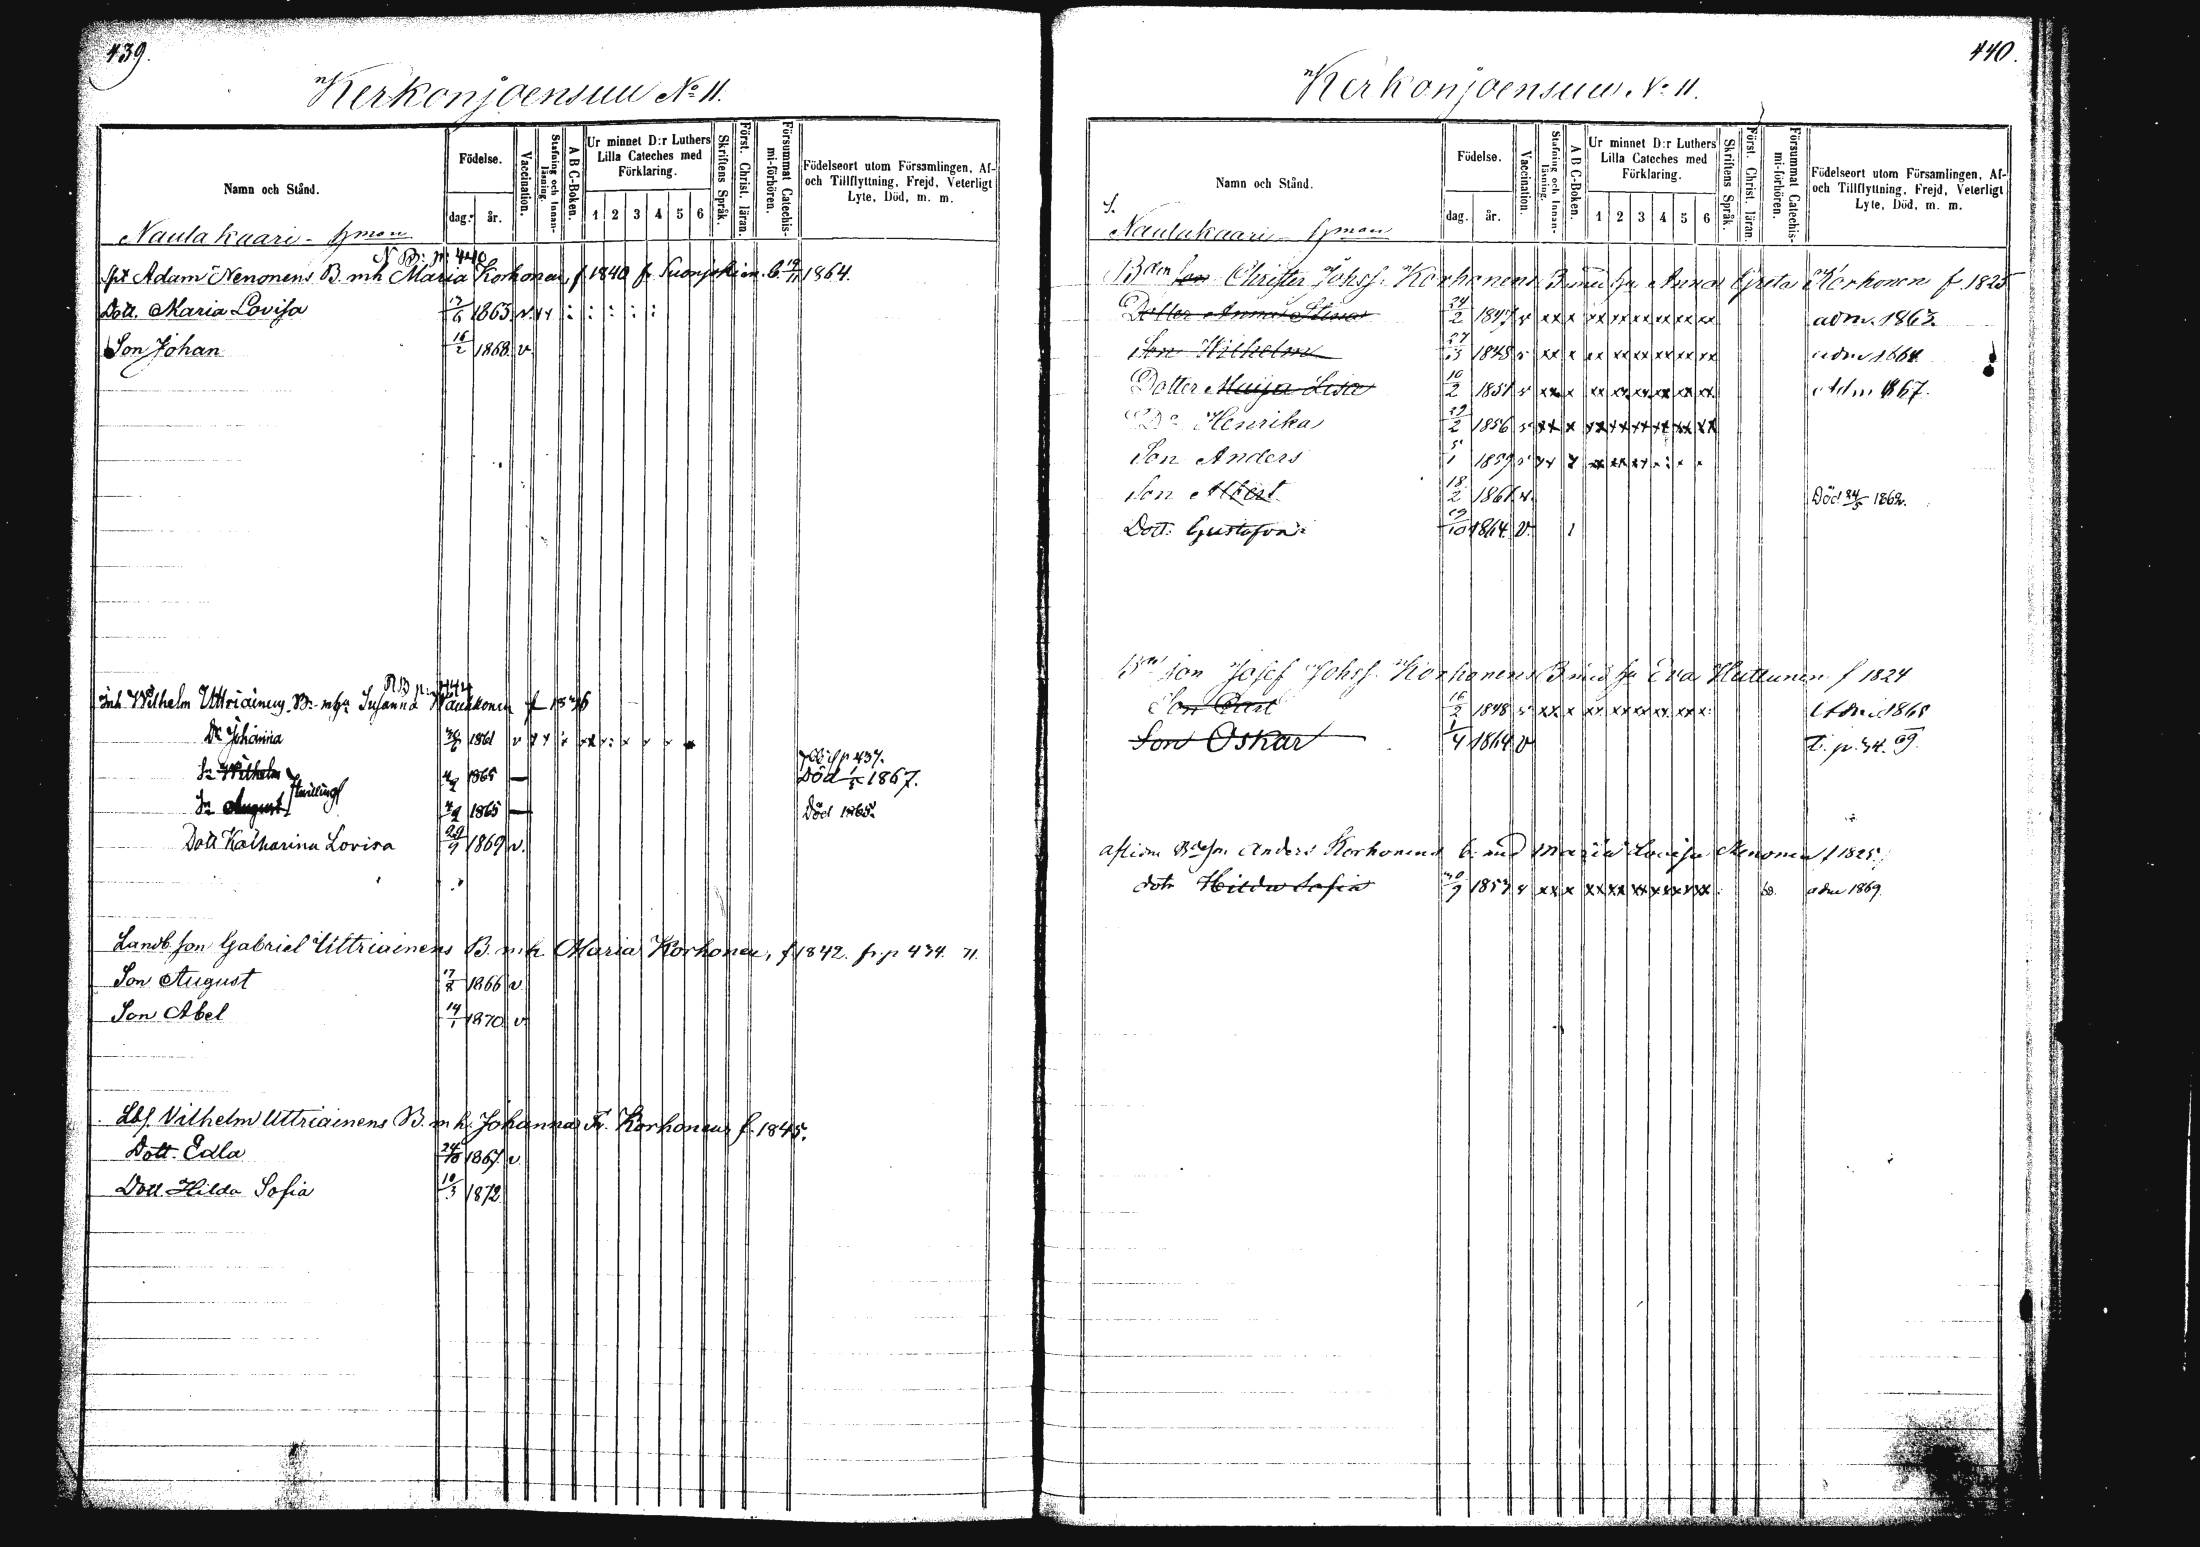 439.
Kerkonjoensuu No 11.
Namn och Stånd.
Födelse.
dag. år.
Vaccination.
Stafning och Innan-läsning.
A B C-Boken.
Ur minnet D:r Luthers Lilla Cateches med Förklaring.
1 2 3 4 5 6
Skriftens Språk.
Först. Christ. läran.
Försummat Catechis-mi-förhören.
Födelseort utom Församlingen, Af- och Tillflyttning, Frejd, Veterligt Lyte, Död, m. m.
Naulakaari - Hman
N B: p: 440
Adam Nenonens B. mh Maria Korhonen, f 1840 fr Suonjokien 1864.
Dott. Maria Lovisa 17/6 1863. v.
Son Johan 16/2 1868. v.
NB p: 442
Inh Wilhelm Uttriainens B. Susanna f 1836
Dr Johanna 1861 v
Sn Wilhelm 4/2 1865 — Död 1867.
tvilling
Sn August 4/2 1865 — Död 1865.
Dott Katharina Lovisa 29/9 1869 v.
Landb. son Gabriel Uttriainens B. m h. Maria Korhonen, f 1842. fr p 434. 71.
Son August 17/8 1866 v
Son Abel 14/1 1870 v.
Lbs. Vilhelm Uttriainens B. m h. Johanna Fr. Korhonen f. 1845.
Dott. Edla 24/10 1867. v.
Dott. Hilda Sofia 10/3 1872
440.
Kerkonjoensuu No 11.
Namn och Stånd.
Födelse.
dag. år.
Vaccination.
Stafning och Innan-läsning.
A B C-Boken.
Ur minnet D:r Luthers Lilla Cateches med Förklaring.
1 2 3 4 5 6
Skriftens Språk.
Först. Christ. läran.
Försummat Catechis-mi-förhören.
Födelseort utom Församlingen, Af- och Tillflyttning, Frejd, Veterligt Lyte, Död, m. m.
Naulakaari Hman
Bden Son Christer Johss. Korhonens B med hu Anna Greta Korhonen f. 1825
Dotter Anna Stina 24/2 1847 v xx x xx xx xx xx xx xx adm. 1863.
Son Wilhelm 1848 v xx x xx xx xx xx xx xx adm 1868
Dotter Maija Lisa 10/2 1851 v xx x xx xx xx xx xx xx Adm 1867.
Do Henrika 1856 v xx x xx xx xx xx xx xx
Son Anders 5/1 1859 v
Son Albert 18/2 1861 v. Död 24/5 1862.
Dott. Gustafva 1864. v. 1
Bde son Josef Johss. Korhonens B med hu Eva Huttunen f 1824
Son Carl 16/2 1848 v xx x xx xx xx xx xx x Adm 1865
Son Oskar 1/4 1864 v T. p. 34. 69.
Anders Korhonens b: med Maria Lovisa Nenonen f 1825.
dotr Hilda Sofia 1853 v xx x xx xx xx xx xx xx adm 1869.